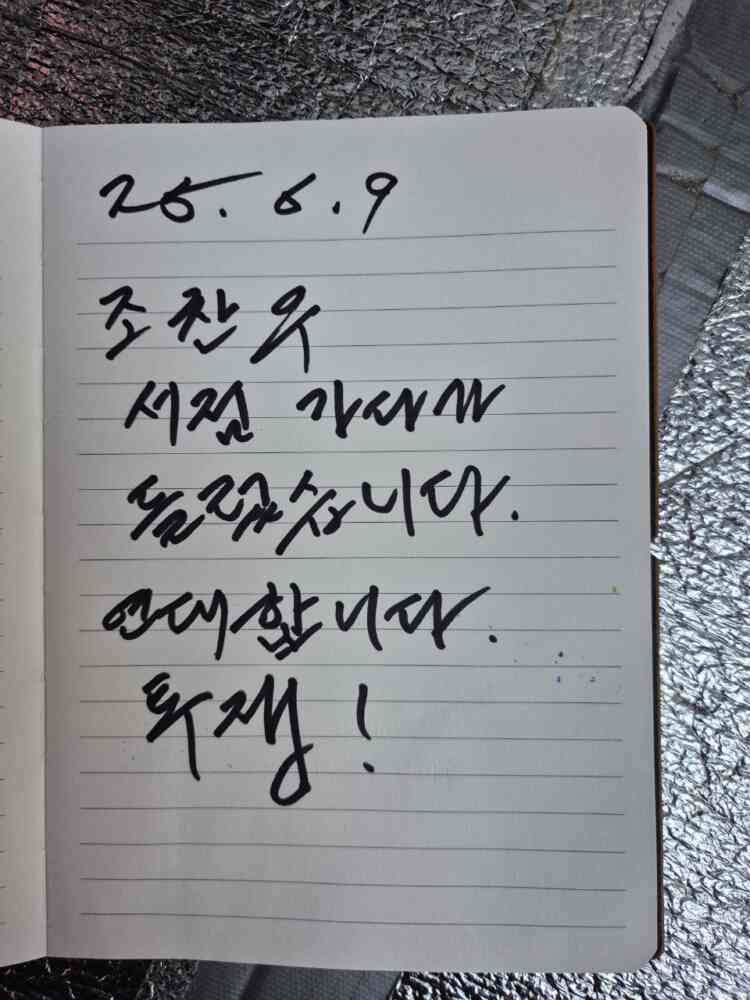 25. 6. 9
조찬우
서점 가사가
들렸습니다.
연대합니다.
투쟁!